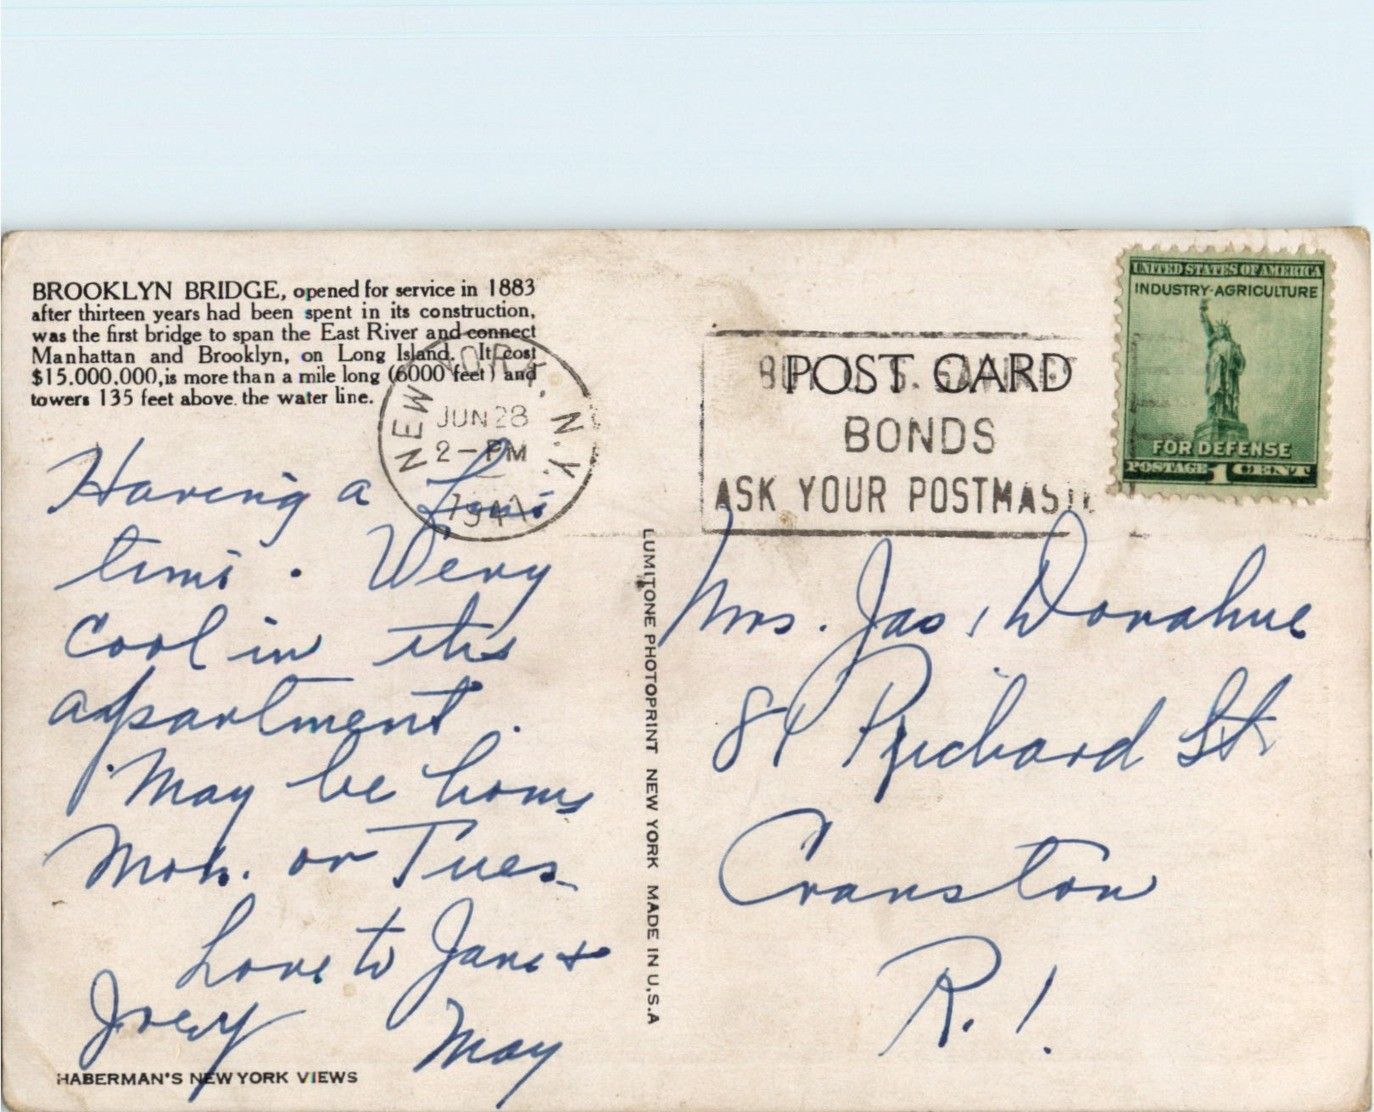 BROOKLYN BRIDGE, opened for service in 1883
after thirteen years had been spent in its construction,
was the first bridge to span the East River and connect
Manhattan and Brooklyn, on Long Island. It cost
$15.000.000, is more than a mile long (6000 feet) and
towers 135 feet above the water line.
NEW YORK, N.Y.
JUN 28
2-PM
1941
POST CARD
BUY U.S. SAVINGS
BONDS
ASK YOUR POSTMASTER
UNITED STATES OF AMERICA
INDUSTRY-AGRICULTURE
FOR DEFENSE
POSTAGE 1 CENT
Having a fine
time. Very
cool in the
apartment.
May be home
Mon. or Tues
Love to Jane &
Joey May
HABERMAN'S NEW YORK VIEWS
LUMITONE PHOTOPRINT NEW YORK MADE IN U.S.A
Mrs. Jas. Donahue
Prichard St
Cranston
R.I.